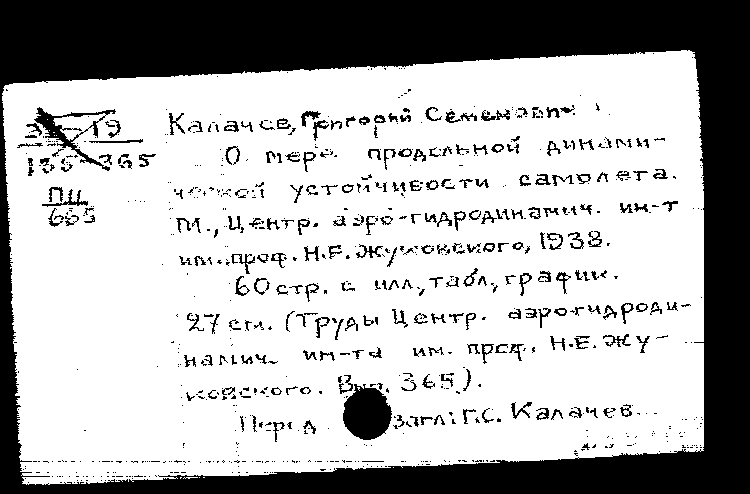 19 Калачев, Григорий Семенович
135-365 О мере продольной динами-
ческой устойчивости самолета.
ПЦ
665
М., Центр. аэро-гидродинамич. ин-т
им. проф. Н.Е. Жуковского, 1938.
60 стр. с илл., табл., график.
27 см. (Труды Центр. аэро-гидроди-
намич. ин-та им. проф. Н.Е. Жу-
ковского. Вып. 365).
Перед загл: Г.С. Калачев.